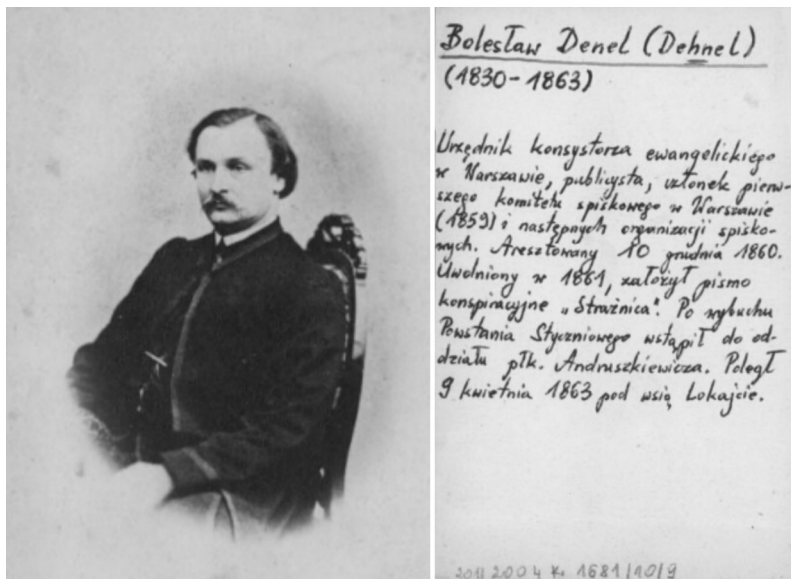 Bolesław Denel (Dehnel)
(1830-1863)
Urzędnik konsystorza ewangelickiego
w Warszawie, publicysta, członek pierw-
szego komitetu spiskowego w Warszawie
(1859) i następnych organizacji spisko-
wych. Aresztowany 10 grudnia 1860.
Uwolniony w 1861, założył pismo
konspiracyjne „Strażnica". Po wybuchu
Powstania Styczniowego wstąpił do od-
działu płk. Andruszkiewicza. Poległ
9 kwietnia 1863 pod wsią Lokajcie.
2004 K. 1681/10/9